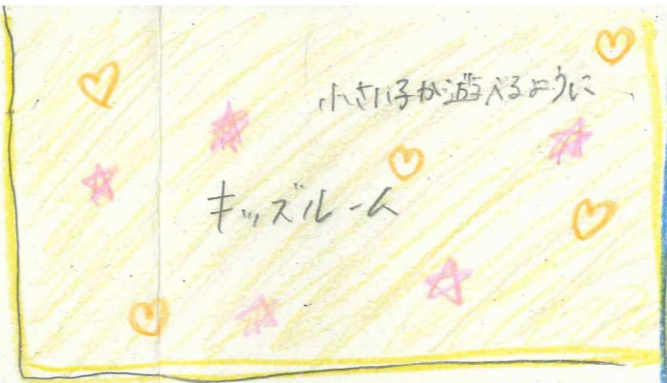 小さい子が遊べるように
キッズルーム